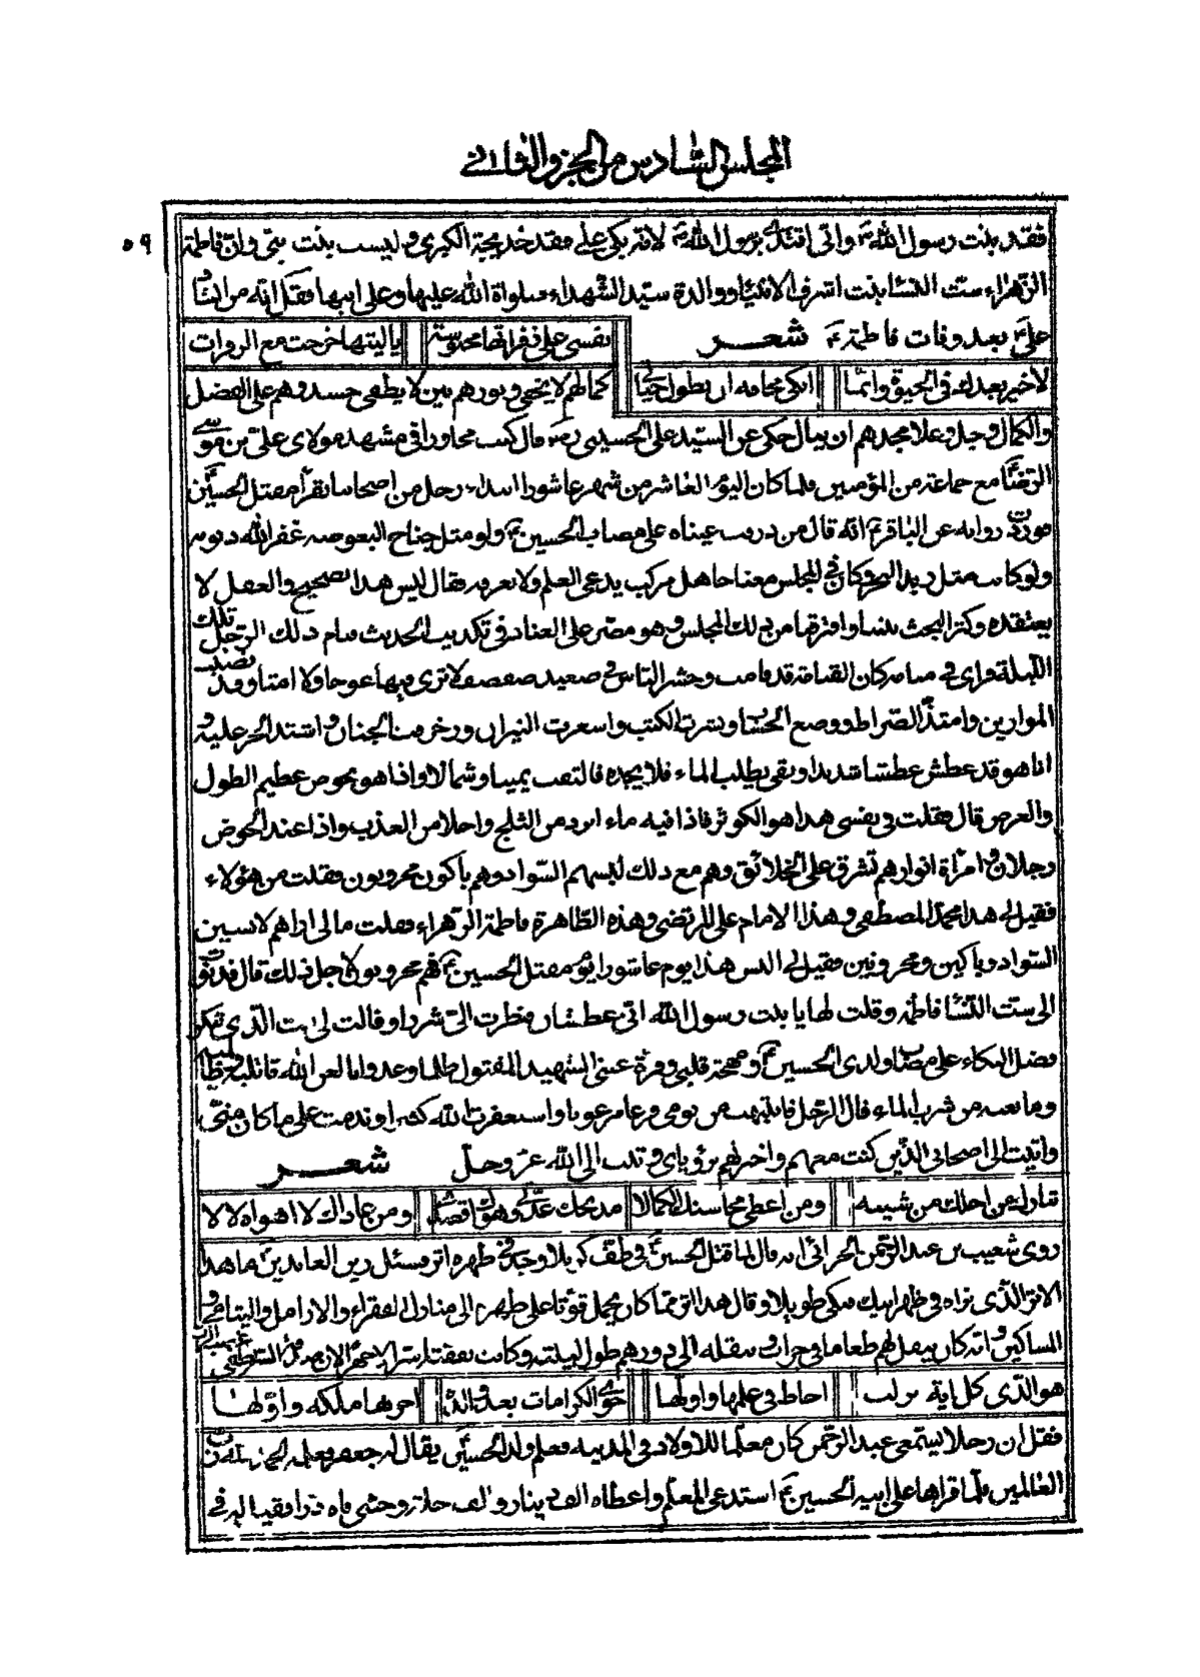 المجلس السادس من الجزو الثاني
٥٩
فقد بنت رسول الله ص واني اقتدى برسول الله ص لانه بكى على فقد خديجة الكبرى وليست بنت نبي وان فاطمة
الزهراء ست النسا بنت اشرف الانبيا ووالدة سيد الشهداء صلواة الله عليها وعلى ابيها فقل انه من انشا
علي ع بعد وفات فاطمة ع شعر نفسي على زفراتها محبوسة ياليتها خرجت مع الزفرات
لا خير بعدك في الحيوة وانما ابكي مخافة ان يطول حياتي كمالهم لا يخفى ونورهم بين لا يطفى حسدوهم على الفضل
والكمال وجل وعلا مجدهم ان ينال حكى عن السيد على الحسيني ره قال كنت مجاورا في مشهد مولاى على بن موسى
الرضا مع جماعة من المؤمنين فلما كان اليوم العاشر من شهر عاشورا ابتداء رجل من اصحابنا يقرأ مقتل الحسين
فوردت رواية عن الباقر ع انه قال من ذرفت عيناه على مصاب الحسين ع ولو مثل جناح البعوضه غفر الله ذنوبه
ولو كانت مثل زبد البحر وكان في المجلس معنا جاهل مركب يدعى العلم ولا يعرفه فقال ليس هذا بصحيح والعقل لا
يعتقده وكثر البحث بيننا وافترقنا من ذلك المجلس وهو مصر على العناد في تكذيب الحديث فنام ذلك الرجل تلك
الليلة فراى في منامه كان القيامة قد قامت وحشر الناس في صعيد صفصف لا ترى فيها عوجا ولا امتا وقد نصبت
الموازين وامتد الصراط ووضع الحساب ونشرت الكتب واسعرت النيران وزخرفت الجنان واشتد الحر عليه و
اذا هو قد عطش عطشا شديدا وبقى يطلب الماء فلا يجده فالتفت يمينا وشمالا واذا هو بحوض عظيم الطول
والعرض قال فقلت في نفسي هذا هو الكوثر فاذا فيه ماء ابرد من الثلج واحلا من العذب واذا عند الحوض
رجلان وامرأة انوارهم تشرق على الخلائق وهم مع ذلك لبسهم السواد وهم باكون محزونون فقلت من هؤلاء
فقيل لي هذا محمد المصطفى وهذا الامام على المرتضى وهذه الطاهرة فاطمة الزهراء فقلت مالى اراهم لابسين
السواد وباكين ومحزونين فقيل لي اليس هذا يوم عاشورا يوم مقتل الحسين ع فهم محزونون لاجل ذلك قال فدنوت
الى ست النسا فاطمه وقلت لها يا بنت رسول الله اني عطشان فنظرت الى شزرا وقالت لى انت الذي تنكر
فضل البكاء على مصاب ولدى الحسين ع ومهجة قلبي وقرة عيني الشهيد المقتول ظلما وعدوانا لعن الله قاتليه وظالميه
ومانعيه من شرب الماء قال الرجل فانتبهت من نومى فزعا مرعوبا واستغفرت الله كثيرا وندمت على ما كان منى
واتيت الى اصحابي الذين كنت معهم واخبرتهم برؤياى وتبت الى الله عز وجل شعر
ومن اعطى محاسنك الكمالا
روى شعيب بن عبد الرحمن الخزاعي انه قال لما قتل الحسين ع في طف كربلا وجد في ظهره اثر فسئل زين العابدين ع ما هذا
الاثر الذى نراه في ظهر ابيك فبكى طويلا وقال هذا اثر مما كان يحمل قوتا على ظهره الى منازل الفقراء والارامل واليتامى و
المساكين وانه كان ينقل لهم طعاما في جراب وينقله الى دورهم طول ليلته وكانت نفقته سرا
هو الذى كل اية نزلت احاط في علمها واولها حوى الكرامات بعد والده اخرها ملكه واولها
فقل ان رجلا يسمى عبد الرحمن كان معلما للاولاد في المدينه فعلم ولد الحسين يقال له جعفر فعلمه الحمد لله رب
العالمين فلما قراها على ابيه الحسين ع استدعى المعلم واعطاه الف دينار والف حلة وحشى فاه درا فقيل له في